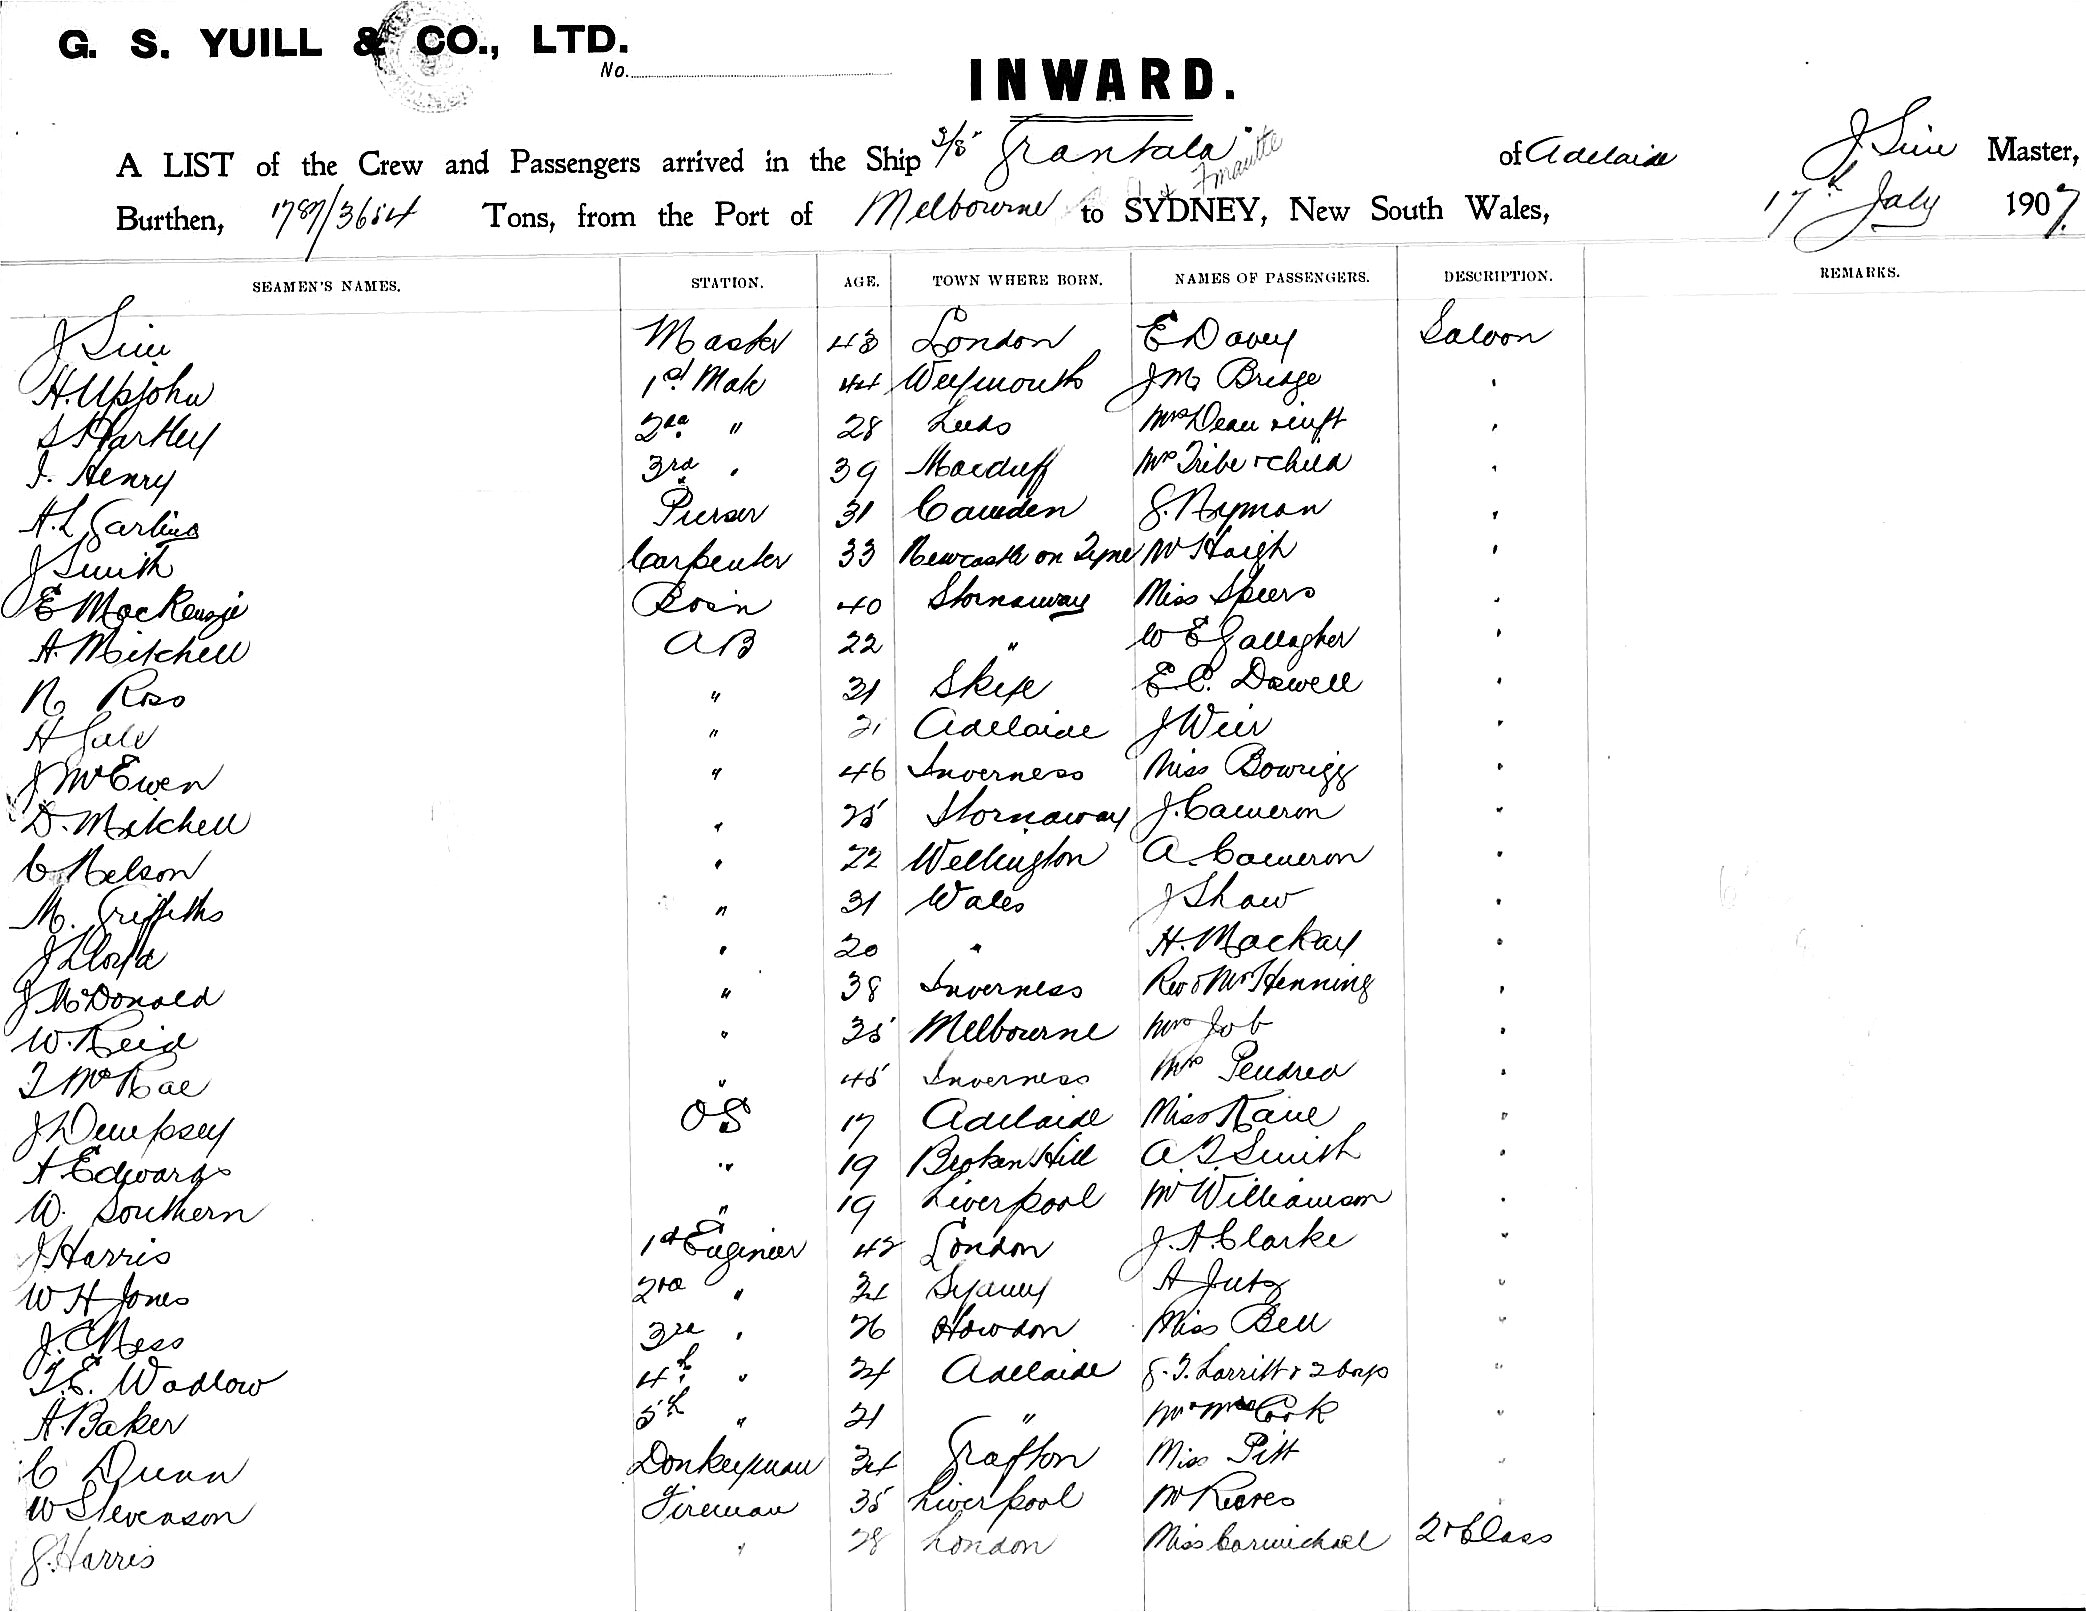 G. S. YUILL & CO., LTD.
No.
INWARD.
A LIST of the Crew and Passengers arrived in the Ship S/S "Grantala" of Adelaide J Sim Master,
Burthen, 1787/3654 Tons, from the Port of Melbourne to SYDNEY, New South Wales, 17th July 1907.
SEAMEN'S NAMES. STATION. AGE. TOWN WHERE BORN. NAMES OF PASSENGERS. DESCRIPTION. REMARKS.
J Sim Master 43 London E Davey Saloon
H. Upjohn 1st Mate 44 Weymouth J M Bridge "
S Hartley 2nd " 28 Leeds Mrs Dean & inft "
J. Henry 3rd " 39 Macduff Mrs Tribe & child "
A. L Garling Purser 31 Camden G. Nyman "
J Smith Carpenter 33 Newcastle on Tyne W Haigh "
E MacKenzie Bosn 40 Stornaway Miss Speers "
A. Mitchell AB 22 " W E Gallagher "
N Ross " 31 Skye E C. Dowell "
H Gale " 21 Adelaide J Weir "
J McEwen " 46 Inverness Miss Bowrigg "
D. Mitchell " 25 Stornaway J. Cameron "
C Nelson " 22 Wellington A Cameron "
M. Griffiths " 31 Wales J Shaw "
J Lloyd " 20 " H. Mackay "
J McDonald " 38 Inverness Rev & Mrs Henning "
W. Reid " 35 Melbourne Mrs Job "
J McRae " 45 Inverness Mrs "
J Dempsey OS 17 Adelaide Miss Kane "
A Edwards " 19 Broken Hill A. T. Smith "
W. Southern " 19 Liverpool Mr Williamson "
J Harris 1st Engineer 42 London J. A. Clarke "
W H Jones 2nd " 34 Sydney A Jutz "
J. C Ness 3rd " 26 Howdon Miss Bell "
T. E. Wadlow 4th " 24 Adelaide G. T. Larritt & 2 boys "
A. Baker 5th " 21 " Mr & Mrs Cork "
C Dunn Donkeyman 34 Grafton Miss Pitt "
W Stevenson Fireman 35 Liverpool Mr Reeves "
G. Harris " 28 London Miss Carmichael 2nd Class